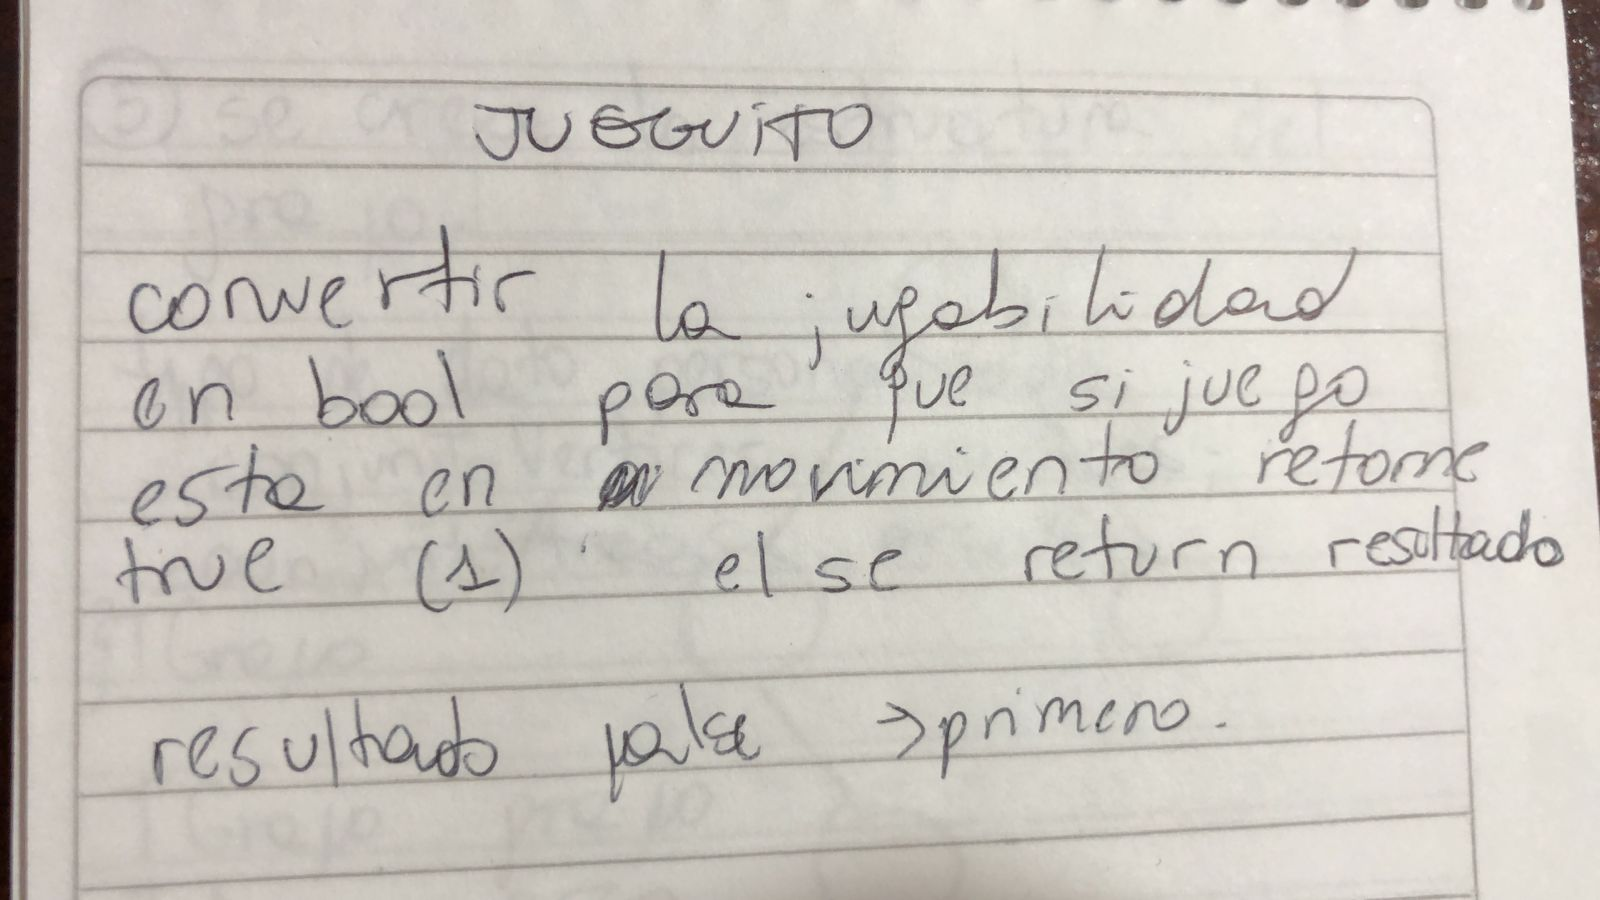 JUEGUITO
convertir la jugabilidad
en bool para que si juego
esta en movimiento retorne
true (1) else return resultado
resultado false → primero.